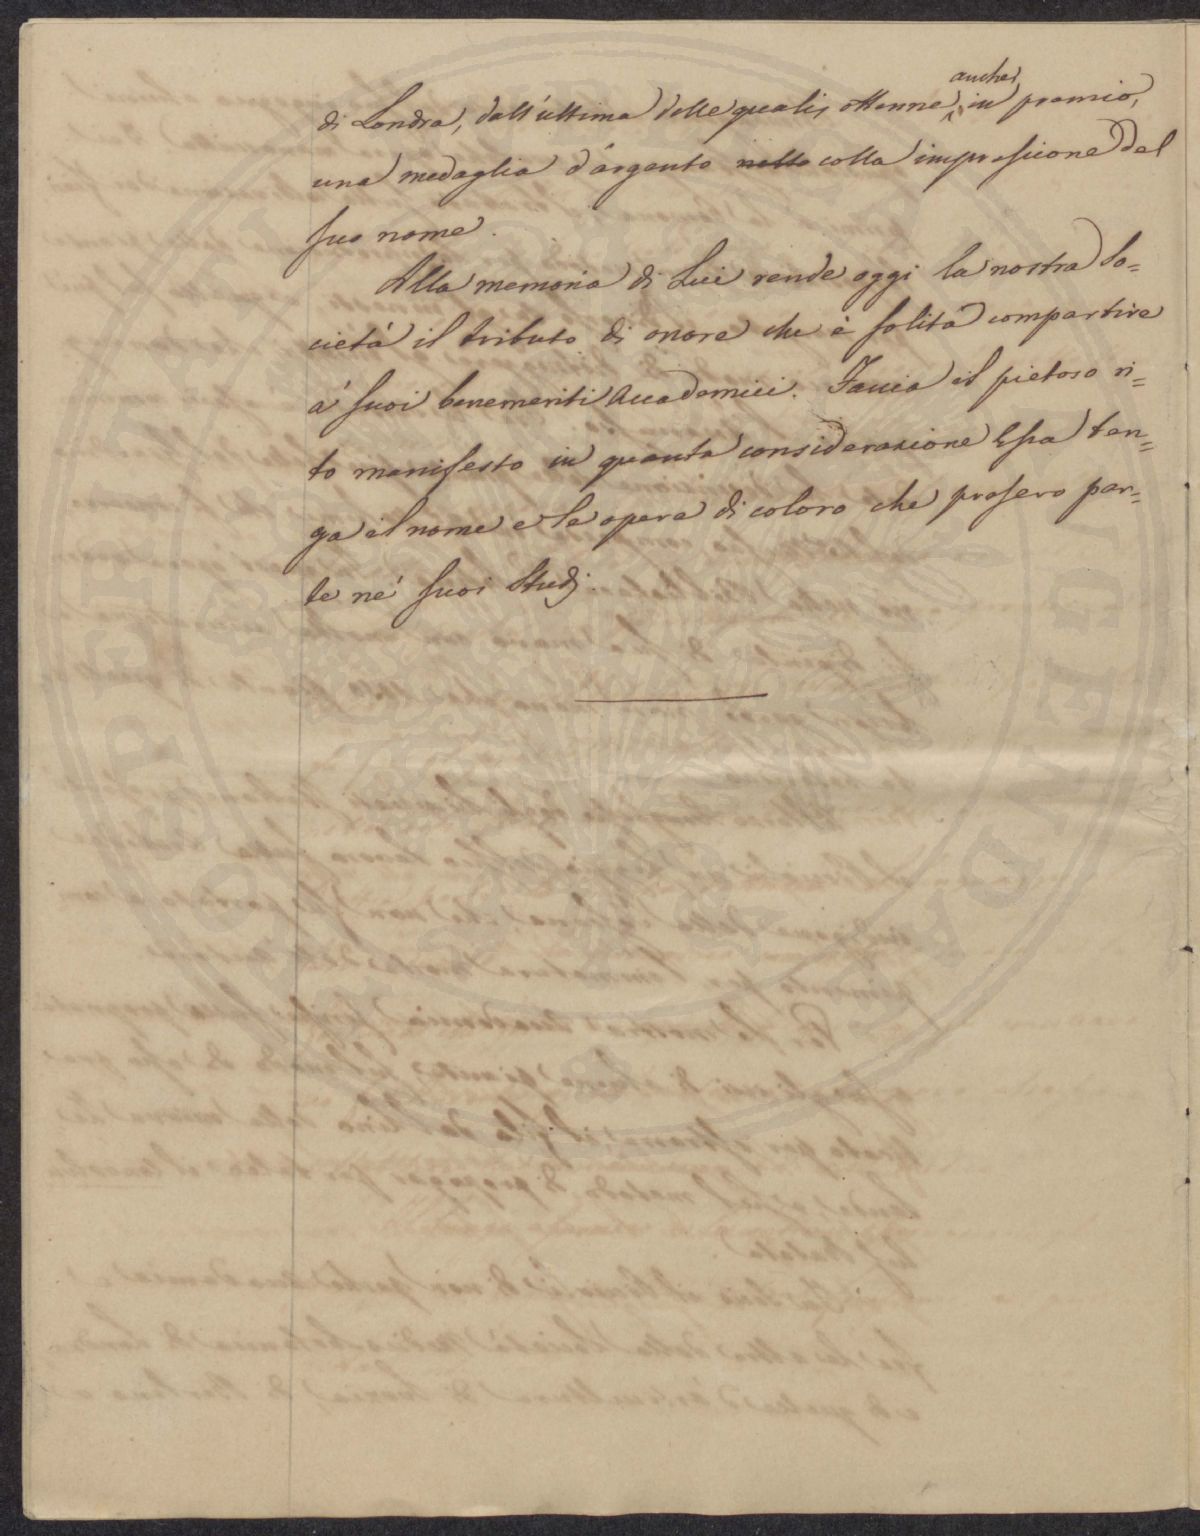 di Londra, dall'ultima delle quali, ottenne, anche in premio,
una medaglia d'argento nella colla impressione del
suo nome.
Alla memoria di Lui rende oggi la nostra So=
cietà il tributo di onore che è solita compartire
a' suoi benemeriti Accademici. Faccia il pietoso ri=
to manifesto in quanta considerazione Essa ten=
ga il nome e le opere di coloro che presero par=
te ne' suoi Studj.